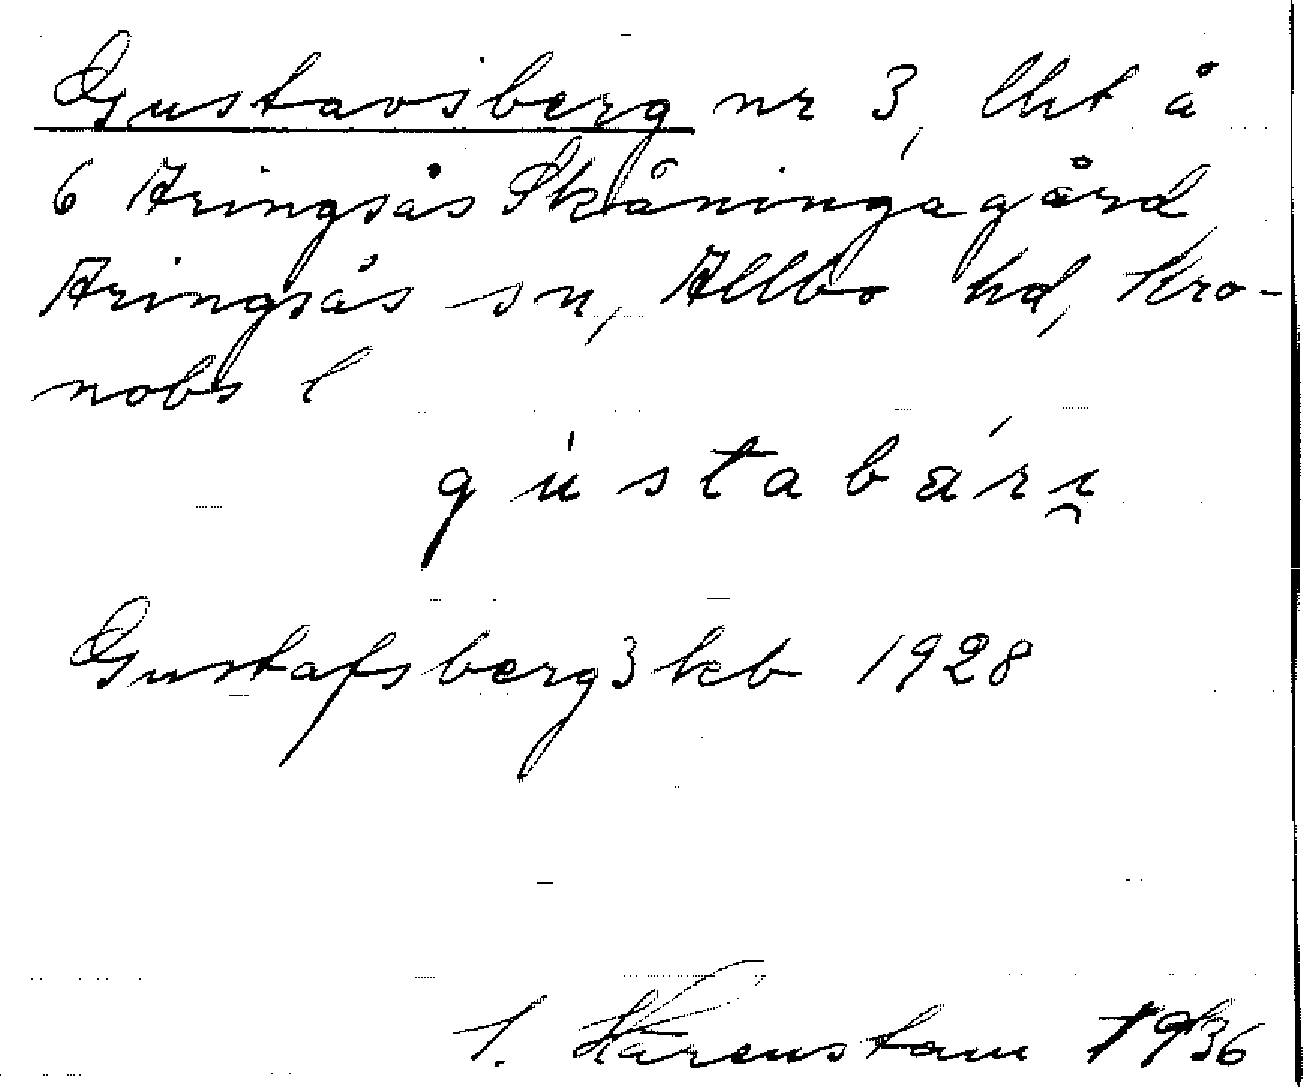 Gustavsberg nr 3, lht å
6 Aringsås Skåningagård
Aringsås sn, Allbo hd, Kro-
nobs l
gústabári̯
Gustafsberg 3 kb 1928
Kärenstam 1936